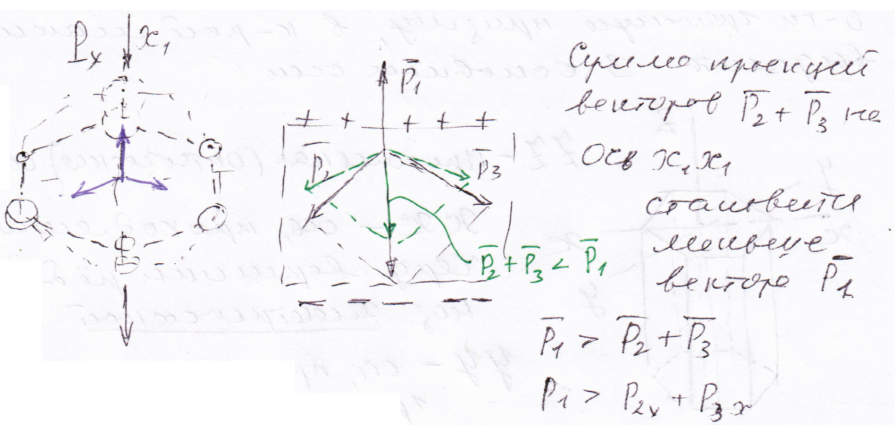 Pₓ x₁
P̄₁
+ + + + +
P̄₂
P̄₃
P̄₂ + P̄₃ < P̄₁
Сумма проекций
векторов P̄₂ + P̄₃ на
Ось x₁x₁
становится
меньше
вектора P̄₁
P̄₁ > P̄₂ + P̄₃
P₁ > P₂ₓ + P₃ₓ